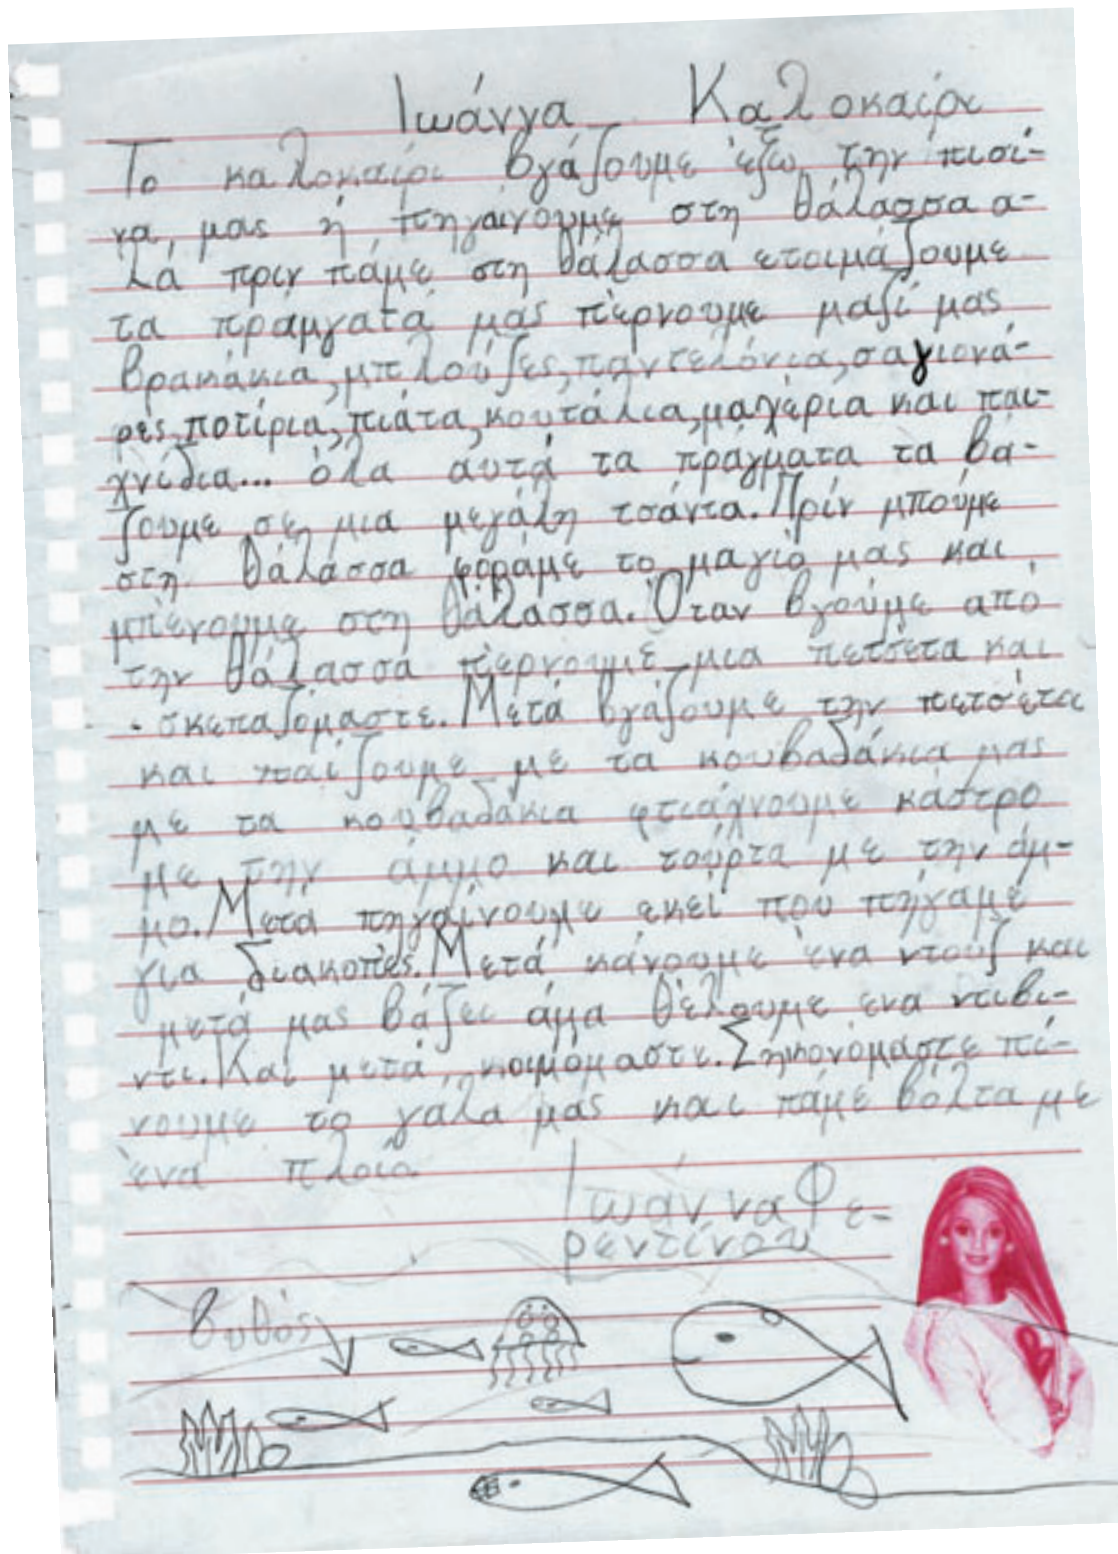 Ιωάννα Καλοκαίρι
Το καλοκαίρι βγάζουμε έξω την πισί-
να, μας ή πηγαινουμε στη θάλασσα α-
λά πριν πάμε στη θάλασσα ετοιμάζουμε
τα πραμγατά μας πέρνουμε μαζί μας
βρακάκια, μπλούζες, παντελόνια, σαγιονά-
ρες, ποτίρια, πιάτα, κουτάλια, μαχέρια και παι-
χνίδια... όλα αυτά τα πράγματα τα βά-
ζουμε σε μια μεγάλη τσάντα. Πρίν μπούμε
στη θάλασσα φοράμε το μαγιό μας και
μπένουμε στη θάλασσα. Όταν βγούμε από
την θάλασσα πέρνουμε μια πετσετα και
σκεπαζόμαστε. Μετά βγάζουμε την πετσέτα
και παίζουμε με τα κουβαδάκια μας
με τα κουβαδάκια φτιάχνουμε κάστρο
με την άμμο και τούρτα με την άμ-
μο. Μετά πηγαίνουμε εκεί που πήγαμε
για διακοπές. Μετά κάνουμε ένα ντούζ και
μετά μας βάζει άμα θέλουμε ενα ντιβι-
ντι. Και μετά κοιμόμαστε. Σηκονόμαστε πί-
νουμε το γάλα μας και πάμε βόλτα με
ένα πλοίο
Ιωάννα Φε-
ρεντίνου
βυθός